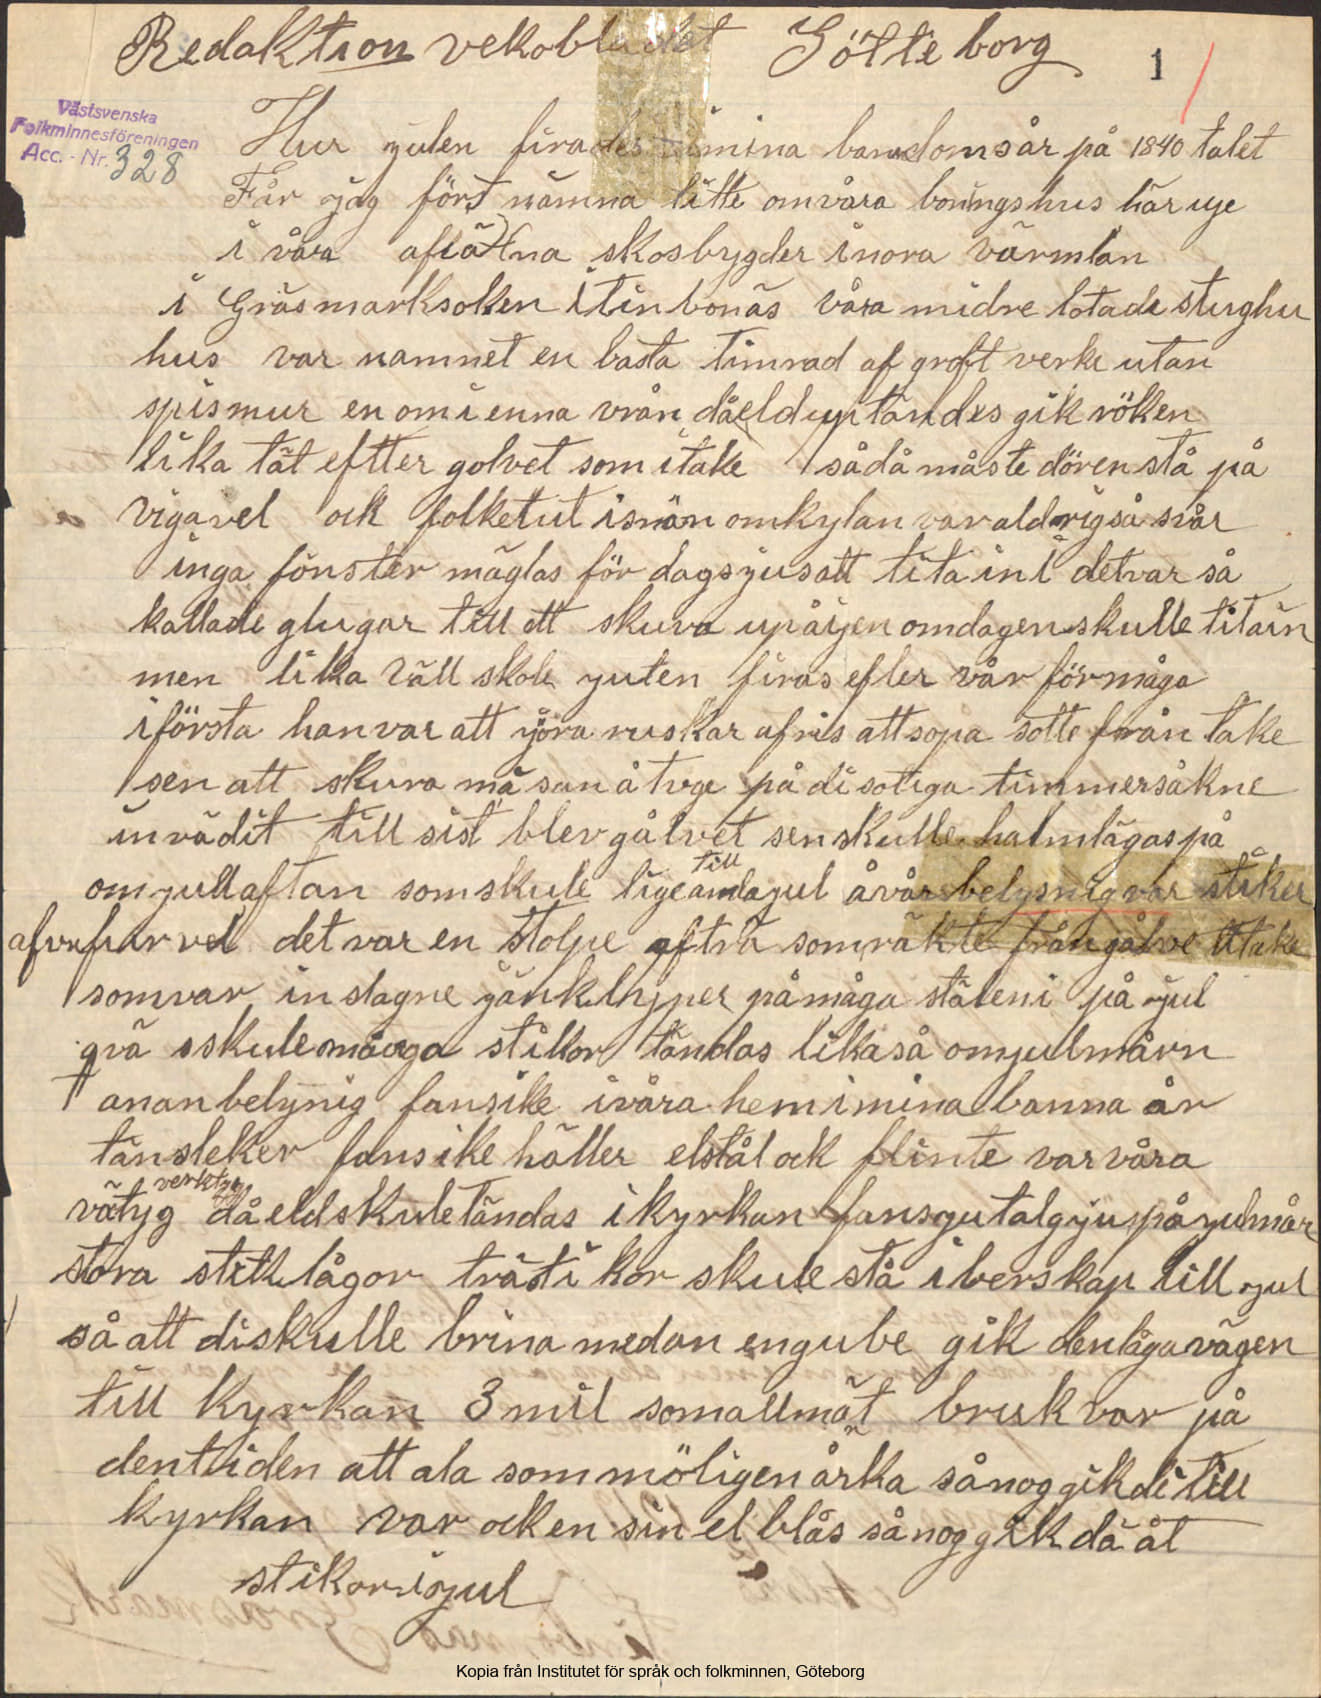 Redaktion vekobladet Götteborg
1
Västsvenska
Folkminnesföreningen
Acc. - Nr. 328
Hur julen firades i mina barndomsår på 1840 talet
Får jag först nämna litte om våra boningshus här uje
i våra aflä na skosbygder i nora värmlan
i Gräsmarksoken i tinbonäs våra midre lotade stughu
hus var namnet en basta timrad af groft verke utan
spismur en om i enna vrån då eld uptändes gik röken
lika tät eftter golvet som i take så då måste dören stå på
vigavel ock folket ut i snön om kylan var aldrig så svår
inga fönster måglas för dagsjus att tita in i det var så
kallade glugar till att skuva up å ijen om dagen skulle tita in
men lika väll skole julen firas efter vår förmåga
i första han var att jöra ruskar af ris att sopa sotte från take
sen att skura må san å tvge på di sotiga timmersåkne
invädit till sist blev gålvet sen skulle halm lägas på
om jullaftan som skule lige till andajul å vår belysnig var stiker
af furved det var en stolpe af trä som räkte från gålve til take
som var in slagne jänklyper på måga stäleni på jul
qvä skule många stikor tändas lika så om julmårn
anan belynig fans ike i våra hem i mina banna år
tänsteker fans ike häller elstål ock flinte var våra
vätyg verktyg då eld skule tändas i kyrkan fans ju talgjus på julmår
stora stiklågor trästikor skule stå i berskap till jul
så att di skulle brina medan en gube gik den låga vägen
till kyrkan 3 mil som allmät bruk var på
den tiden att ala som möligen årka så nog gik di till
kyrkan var ock en sin el blås så nog gik då åt
stikor i jul
Kopia från Institutet för språk och folkminnen, Göteborg